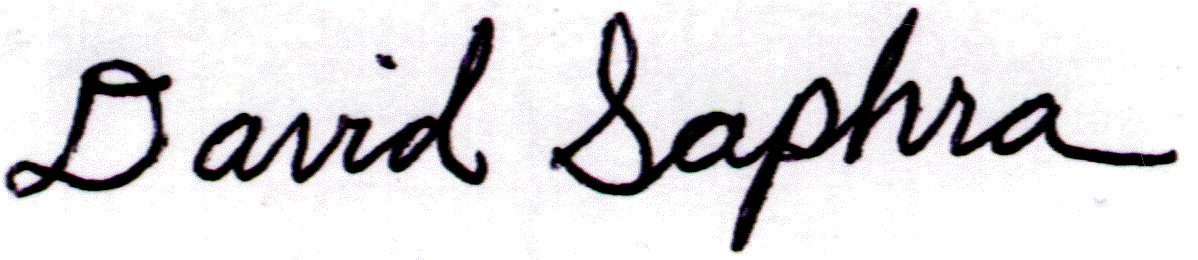 David Saphra